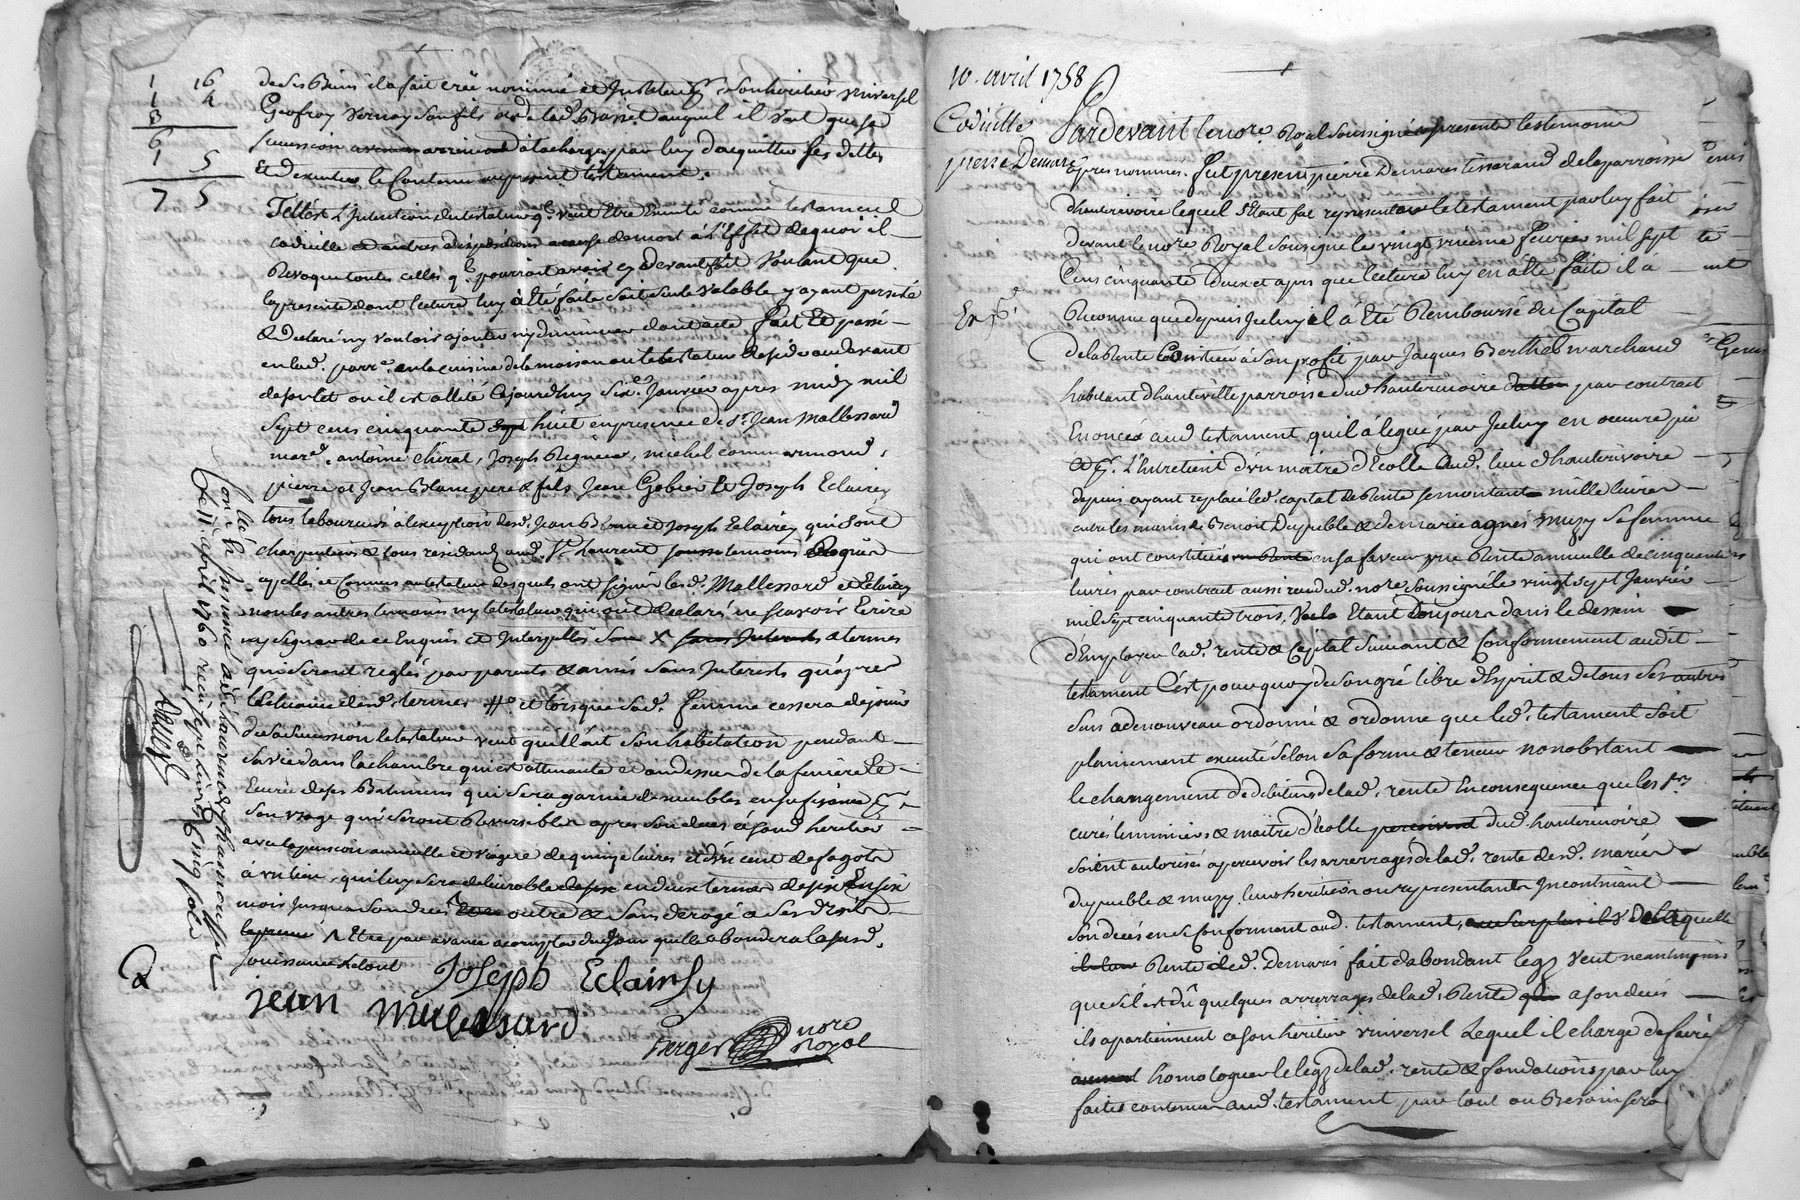 1 16
1 4
3
6
1 5
7 5
de ses Biens il a fait créé nommé et Institué son heritier universel
Geofroy Vernay son fils et de lad. Brosset auquel il veut que sa
sucession à la charge par luy d'acquitter ses dettes
Et d'executer le Contenu au present testament.
Telle est L'Intention du testateur q. veut Etre Executé comme testament
codicille et autres dispositions a cause de mort à L'Effet de quoi il
Revoque toutes celles q. pourroit avoir cy devant fait Voulant que
la presente dont lecture luy à Eté faite soit seule valable y ayant persisté
& Declaré ny vouloir ajouter ny diminuer dont acte fait Et passé
en lad. parr. en la cuisine de la maison ou le testateur Reside au devant
du poele ou il est allité Cejourdhuy Six. Janvier apres midy mil
Sept cens cinquante huit en presence de Sr. Jean Mallessard
mar. antoine Chirat, Joseph Regnier, michel commarmond,
pierre et Jean Blanc pere & fils Jean Gobier Et Joseph Eclairsy
tous laboureurs à l'exception desd. Jean Blanc et Joseph Eclairsy qui sont
charpentiers & tous residands aud. St. Laurent temoins Requis
apellés et Connus au testateur desquels ont signé lesd. Mallessard et Eclairsy
non les autres temoins ny le testateur qui ont declaré ne scavoir Ecrire
ny signer de ce Enquis et Interpellés X a termes
qui seront reglés par parents & amis sans Interests qu'apres
l'Echéance desd. termes # et lorsque sad. femme cessera de jouir
de sa sucession le testateur veut quelle ait son habitation pendant
sa vie dans la chambre qui est attenante et au dessus de la feniere Et
Ecurie de ses Batiments qui sera garnie de meubles en suffisance p.
son usage qui seront Reversibles apres son deces à sond. heritier
avec la pension annuelle et viagere de quinze livres et d'un cent de fagots
à un lien, qui luy sera delivrable en deux termes de six En six
mois jusqu'a son deces outre & sans deroger a ses droits
Etre par avance a compter du Jour quelle abandonnera lasusd.
Jouissance de tout
Joseph Eclairsy
jean mallessard
Berger nore royal
2
le 11 avril 1760 reçu sept livres cinq sols
10. avril 1758
Codicille
pierre Demare
Ex.
Pardevant le nore. Royal soussigné & presents les temoins
apres nommés. fut present pierre Demares tisserand de la parroisse
d'hauterivoire lequel S'Etant fait representer le testament par luy fait
devant le nore Royal soussigné le vingt unieme fevrier mil sept
Cens cinquante deux et apres que lecture luy en a Eté faite il à
Reconnu que depuis Jceluy il à Eté Remboursé du Capital
de la Rente Constituée à son profit par Jacques Berthet marchand
habitant d'hauteville parroisse dud. hauterivoire par contract
Enoncée aud. testament qu'il à legué par Jceluy en oeuvre pie
& p. L'Entretient d'un maitre d'Ecolle aud. lieu d'hauterivoire
depuis ayant replacé led. capital de Rente se montant mille livres
entre les mains de Benoit Dupuble & de marie agnes muzy sa femme
qui ont constitués en sa faveur une Rente annuelle de cinquante
livres par contract aussi recu dud. nore soussigné le vingt sept Janvier
mil sept cinquante trois, Etant toujours dans le dessein
d'Employer lad. rente & Capital Suivant & Conformement audit
testament C'est pourquoy de son gré libre d'Esprit & de tous ses autres
Sens a de nouveau ordonné & ordonne que led. testament soit
plainement executé selon sa forme & teneur nonobstant
le changement de debiteurs de lad. rente En consequence que les Srs
curé, luminiers & maitre d'Ecolle dud. hauterivoire
soient autorisés a percevoir les arrerages de lad. rente desd. mariés
Dupuble & muzy, leurs heritiers ou representants Incontinant
son deces en se Conformant aud. testament, de laquelle
Rente led. Demares fait d'abondant legs veut neantmoins
que s'il est dû quelques arrerages de lad. Rente a son deces
ils apartiennent a son heritier universel Lequel il charge de faire
homologuer le legs de lad. rente & fondations par luy
faites contenues aud. testament par tout ou Besoin sera